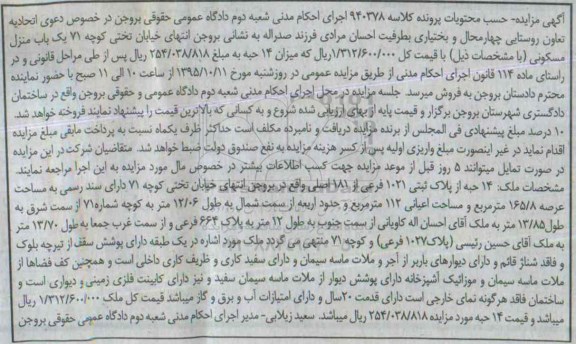 آگهی مزایده- حسب محتویات پرونده کلاسه ۹۴۰۳۷۸ اجرای احکام مدنی شعبه دوم دادگاه عمومی حقوقی بروجن در خصوص دعوی اتحادیه
تعاون روستایی چهارمحال و بختیاری بطرفیت احسان مرادی فرزند صدراله به نشانی بروجن انتهای خیابان تختی کوچه ۷۱ یک باب منزل
مسکونی (با مشخصات ذیل) با قیمت کل ۱/۳۱۲/۶۰۰/۰۰۰ریال که میزان ۱۴ حبه به مبلغ ۲۵۴/۰۳۸/۸۱۸ ریال پس از طی مراحل قانونی و در
راستای ماده ۱۱۴ قانون اجرای احکام مدنی از طریق مزایده عمومی در روزشنبه مورخ ۱۳۹۵/۱۰/۱۱ از ساعت ۱۰ الی ۱۱ صبح با حضور نماینده
محترم دادستان بروجن به فروش میرسد. جلسه مزایده در محل اجرای احکام مدنی شعبه دوم دادگاه عمومی و حقوقی بروجن واقع در ساختمان
دادگستری شهرستان بروجن برگزار و قیمت پایه از بهای ارزیابی شده شروع و به کسانی که بالاترین قیمت را پیشنهاد نمایند فروخته خواهد شد.
۱۰ درصد مبلغ پیشنهادی فی المجلس از برنده مزایده دریافت و نامبرده مکلف است حداکثر ظرف یکماه نسبت به پرداخت مابقی مبلغ مزایده
اقدام نماید در غیر اینصورت مبلغ واریزی اولیه پس از کسر هزینه مزایده به نفع صندوق دولت ضبط خواهد شد. متقاضیان شرکت در این مزایده
در صورت تمایل میتوانند ۵ روز قبل از موعد مزایده جهت کسب اطلاعات بیشتر در خصوص مال مورد مزایده به این اجرا مراجعه نمایند.
مشخصات ملک: ۱۴ حبه از پلاک ثبتی ۱۰۲۱ فرعی از ۱۸۱ اصلی واقع در بروجن انتهای خیابان تختی کوچه ۷۱ دارای سند رسمی به مساحت
عرصه ۱۶۵/۸ مترمربع و مساحت اعیانی ۱۱۲ مترمربع و حدود اربعه از سمت شمال به طول ۱۲/۰۶ متر به کوچه شماره۷۱ از سمت شرق به
طول۱۳/۸۵ متر به ملک آقای احسان اله کاویانی از سمت جنوب به طول ۱۲ متر به پلاک ۶۶۴ فرعی و از سمت غرب جمعا به طول ۱۳/۷۰ متر
به ملک آقای حسین رئیسی (پلاک۱۰۲۷ فرعی) و کوچه ۷۱ منتهی می گردد ملک مورد اشاره در یک طبقه دارای پوشش سقف از تیرچه بلوک
و فاقد شناژ قائم و دارای دیوارهای باربر از آجر و ملات ماسه سیمان و دارای سفید کاری و ظریف کاری داخلی است و همچنین کف فضاها از
ملات ماسه سیمان و موزائیک آشپزخانه دارای پوشش دیوار از ملات ماسه سیمان سفید و نیز دارای کابینت فلزی زمینی و دیواری است و
ساختمان فاقد هرگونه نمای خارجی است دارای قدمت ۲۰سال و دارای امتیازات آب و برق و گاز میباشد قیمت کل ملک ۱/۳۱۲/۶۰۰/۰۰۰ ریال
میباشد و قیمت ۱۴ حبه مورد مزایده ۲۵۴/۰۳۸/۸۱۸ ریال میباشد. سعید زیلابی- مدیر اجرای احکام مدنی شعبه دوم دادگاه عمومی حقوقی بروجن